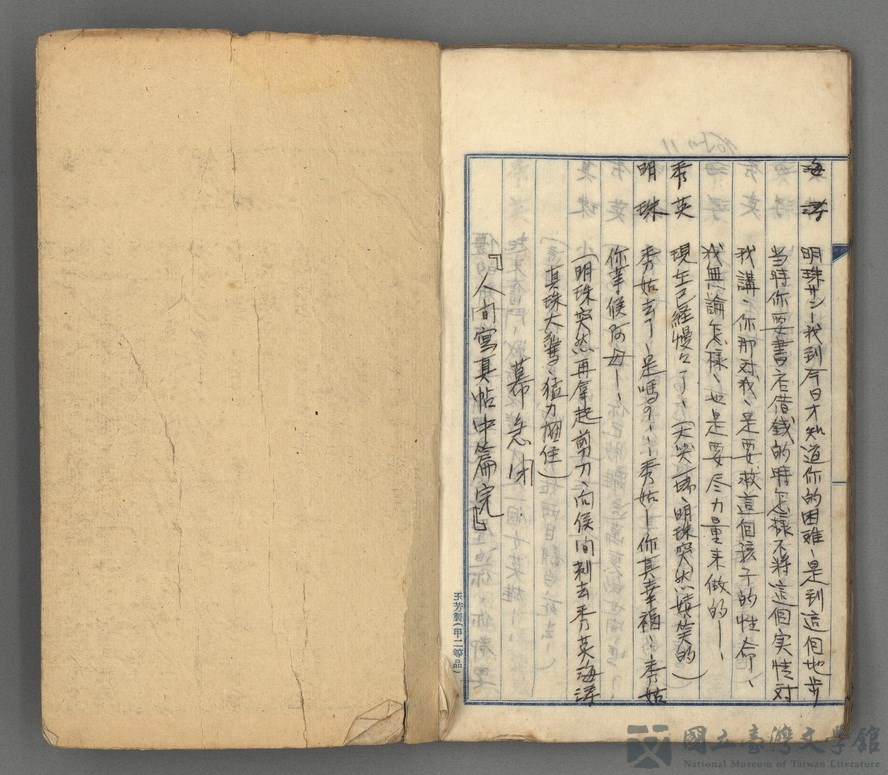 海濤 明珠サン—我到今日才知道你的困难、是到這個地步
当時你要書店借錢的時怎樣不將這個实情对
我講、你那对我、是要救這個孩子的性命、
我無論怎樣、也是要尽力量来做的—、
秀英 現在已経慢了—、(大哭 明珠突然 笑的)
明珠 秀姑去了—是嗎?、、、秀姑—你真幸福、秀姑
你等候阿母—、
(明珠突然再拿起剪刀、向侯间刺去秀英海濤
真珠大驚、猛力 住)
幕急閉.
『人间写真帖中篇完』
玉芳製(甲二等品)
國立臺灣文學館
National Museum of Taiwan Literature